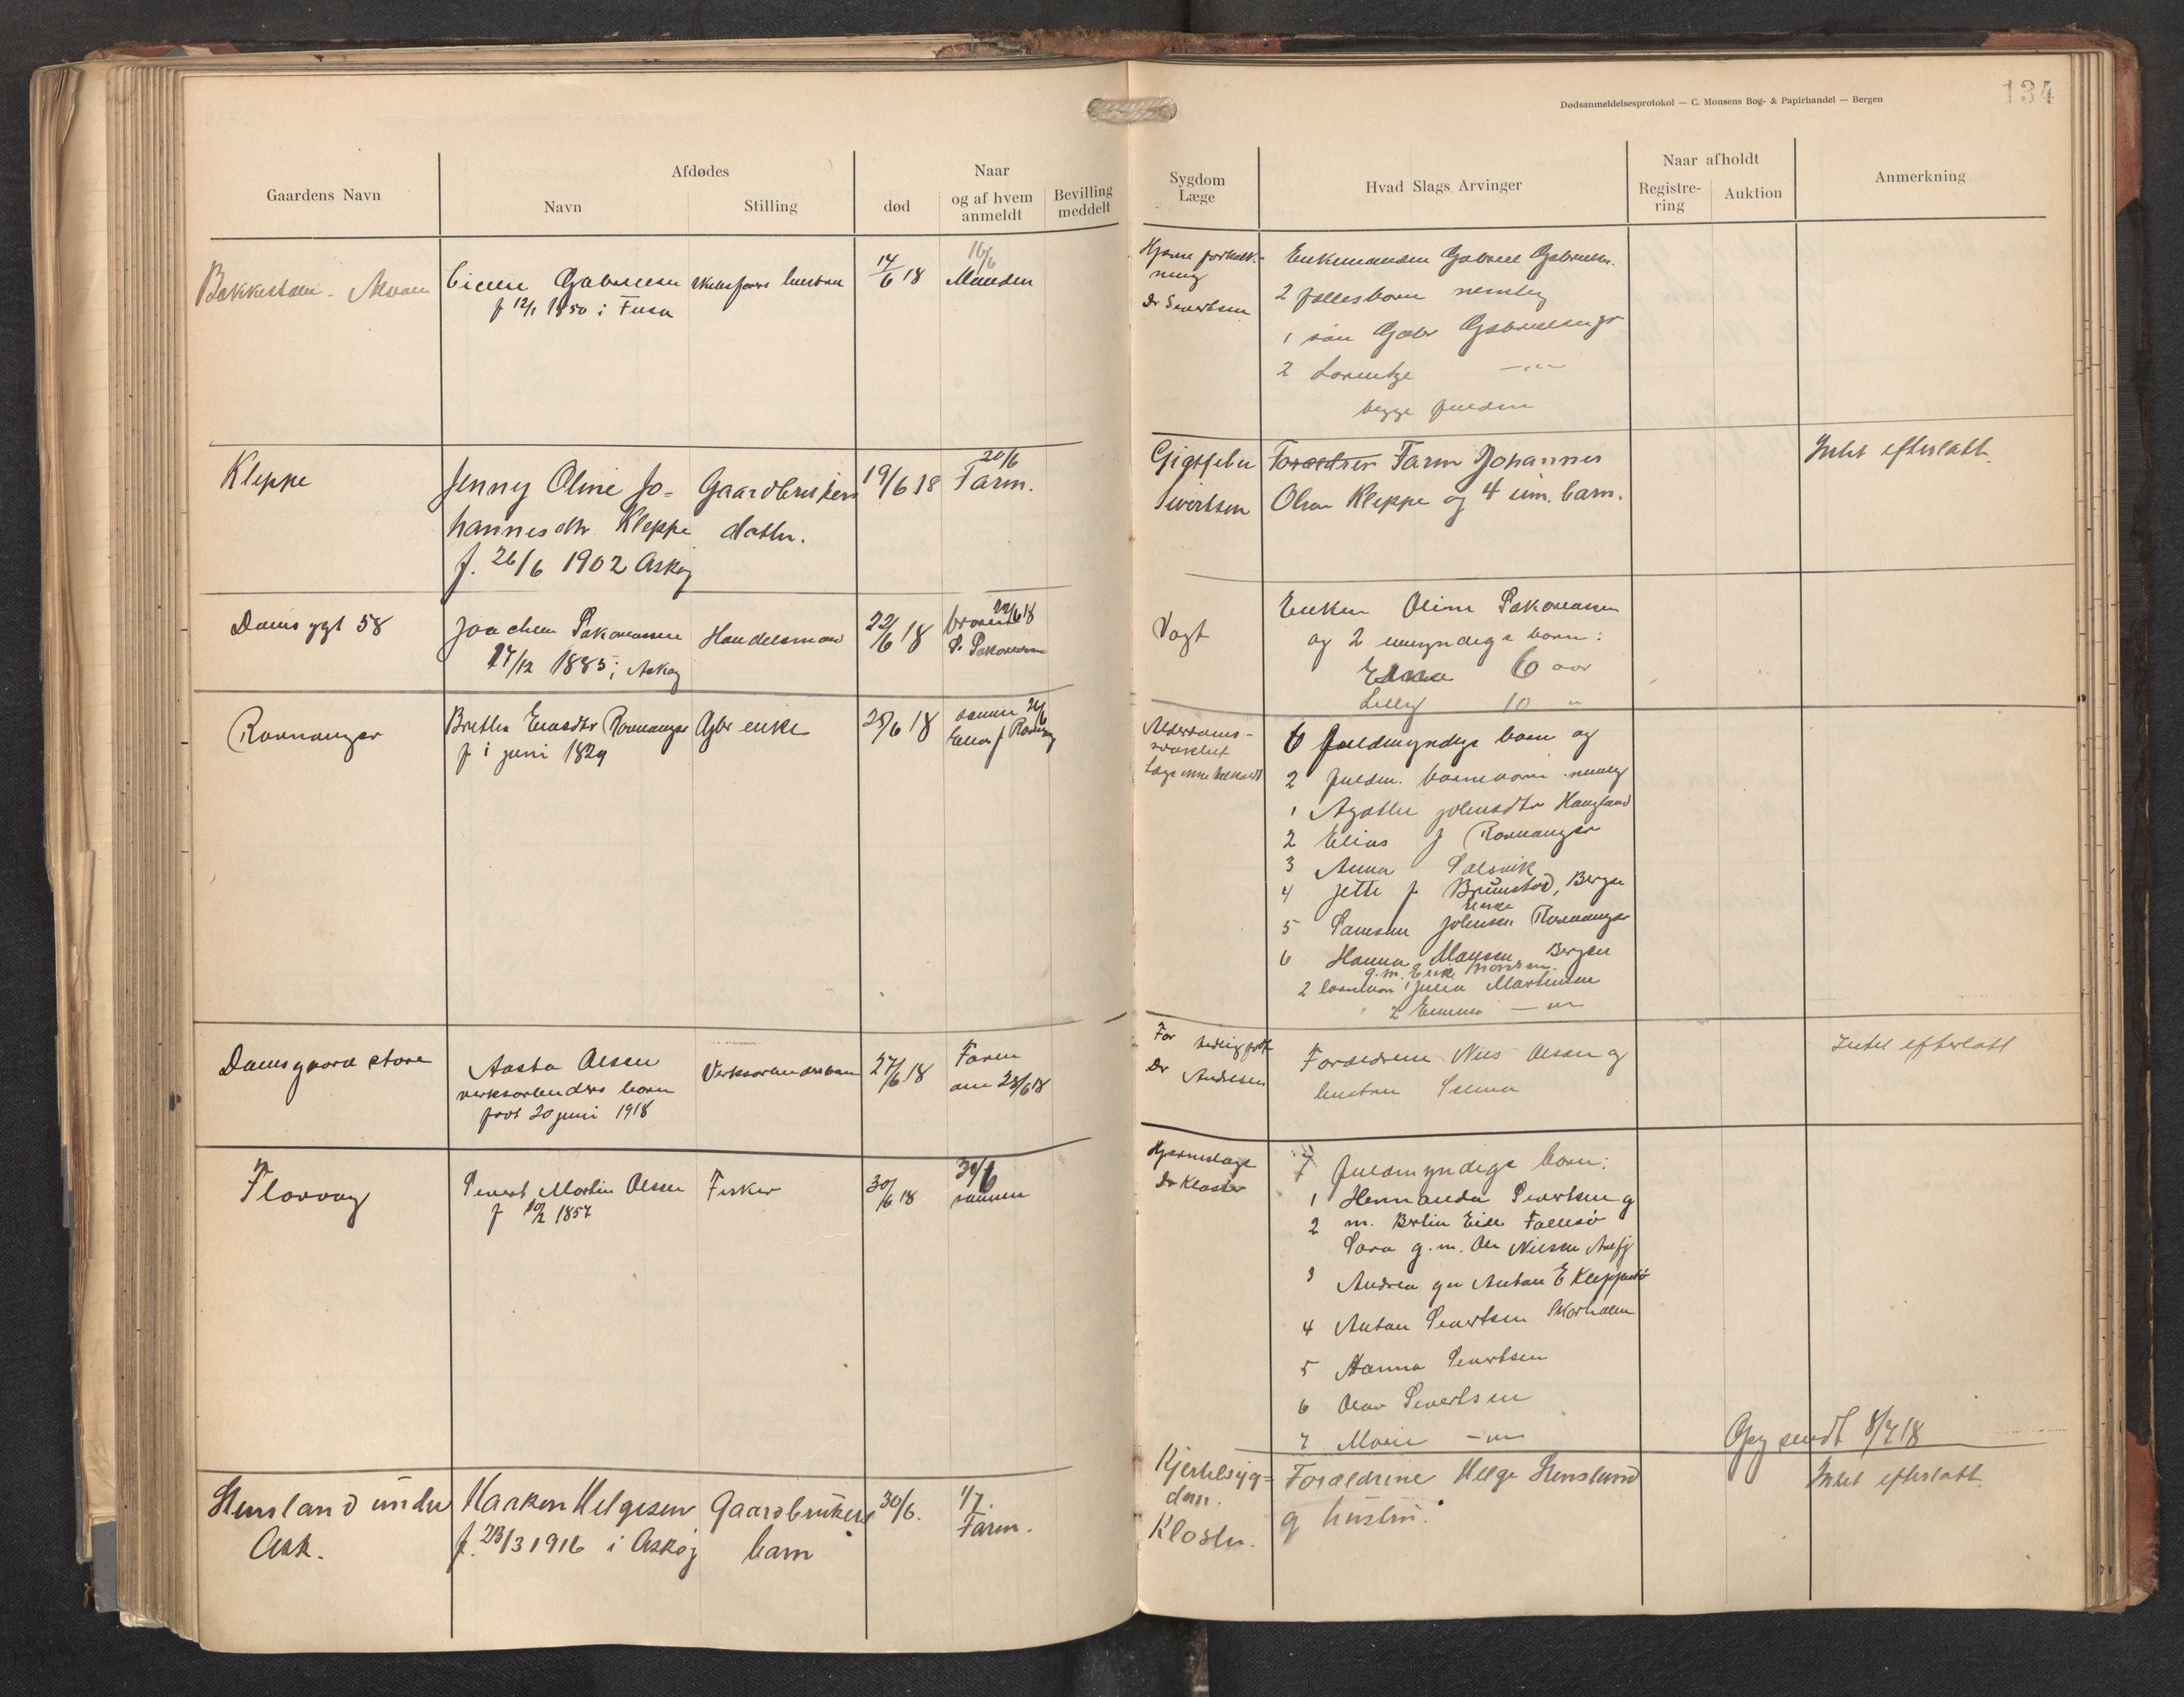 Dødsanmeldelsesprotokol — C. Monsens Bog- & Papirhandel — Bergen
134
Gaardens Navn
Afdødes
Navn
Stilling
død
Naar
og af hvem
anmeldt
Bevilling
meddelt
Sygdom
Læge
Hvad Slags Arvinger
Naar afholdt
Registre-
ring
Auktion
Anmerkning
Gabrielsen
f 12/1 1850 i Fusa
hustru
14/6 18
16/6
Manden
Hjerneforkalk-
ning
Dr Sivertsen
Enkemanden Gabriel Gabrielsen
2 fællesbarn nemlig
1 søn Gabr Gabrielsen jr
2 Lorentze —"—
begge fuldm
Kleppe
Jenny Oline Jo-
hannesdtr Kleppe
f. 26/6 1902 Askøy
Gaardbrukers
datter.
19/6 18
20/6
Faren.
Gigtfeber
Sivertsen
Forældren Faren Johannes
Olsen Kleppe og 4 um. barn.
Intet efterlatt.
Damsgt 58
Joachim Sakariassen
27/12 1885 i Askøy
Handelsmand
22/6 18
22/6 18
broren
S. Sakariassen
Vogt
Enken Oline Sakariassen
og 2 umyndige barn:
6 aar
Lilly 10 "
Ravnanger
Brethe Ravnanger
f i juni 1829
Gbr enke
25/6 18
sønnen 26/6
Elias J Ravnang
Alderdoms-
svakhet
Læge ikke tilkaldt
6 fuldmyndige barn og
2 fuldm. barnebarn nemlig
1 Agathe Johnsdtr Haugland
2 Elias J Ravnanger
3 Anna
4 Jette J Brunstad, Bergen
Enke
5 Samson Johnsen Ravnanger
6 Hanna Monsen Bergen
g.m. Erik Monsen.
2 barnebarn 1 Julia Martinsen
2 Emma —"—
Damsgaard store
Aasta Olsen
verksarbeiders barn
født 20 juni 1918
Verksarbeidersbarn
27/6 18
Faren
anm 28/6 18
For tidlig født
Dr Andresen
Forældrene Nils Olsen og
hustru Selma
Intet efterlatt
Florvaag
Sivert Martin Olsen
f 10/2 1857
Fisker
30/6 18
30/6
sønnen
Hjerneslag
Dr Kloster
7 fuldmyndige barn:
1 Hermanda Sivertsen g
2 m. Berlin Eide Follesø
Sara g.m. Ole Nilsen
3 Andrea gm Anton E Kleppestø
4 Anton Sivertsen Skarholm
5 Hanna Sivertsen
6 Olav Sivertsen
7 Marie —"—
Opg sendt 8/7 18
Stensland under
Ask.
Haakon Helgesen
f. 23/3 1916 i Askøy
Gaardbrukers
barn
30/6.
1/7.
Faren.
Hjertesyg-
dom.
Kloster.
Forældrene Helge Stensland
og hustru.
Intet efterlatt.